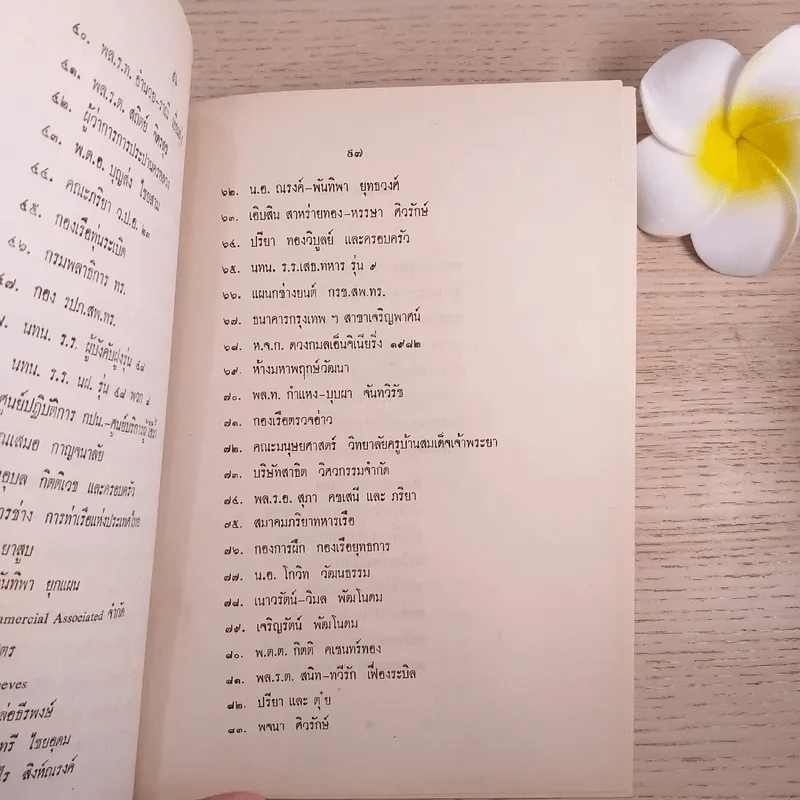 ๔๐. พล.ร.ท. อำนวย
๔๑. พล.ร.ต. สถิตย์
๔๒. ผู้ว่าการการประปานครหลวง
๔๓. พ.ต.อ. บุญส่ง ไชยสาม
๔๔. คณะภริยา ว.ป.อ. ๒๓
๔๕. กองเรือทุ่นระเบิด
๔๖. กรมพลาธิการ ทร.
๔๗. กอง รปภ.สพ.ทร.
นทน. ร.ร. ผู้บังคับฝูงรุ่น ๔๘
นทน. ร.ร. นฝ. รุ่น ๔๘ พวก ๔
ศูนย์ปฏิบัติการ กปน.-ศูนย์บริการผู้ใช้น้ำ
ณเสมอ กาญจนาลัย
อุบล กิตติเวช และครอบครัว
การช่าง การท่าเรือแห่งประเทศไทย
ยาสูบ
นันทิพา ยุกแผน
mmercial Associated จำกัด
ตร
eeves
ล่อธีรพงษ์
ทรี ไชยอุดม
ไร สิงห์ณรงค์
๕๗
๖๒. น.อ. ณรงค์-พันทิพา ยุทธวงศ์
๖๓. เอิบสิน สาหร่ายทอง-หรรษา ศิวรักษ์
๖๔. ปรียา ทองวิบูลย์ และครอบครัว
๖๕. นทน. ร.ร.เสธ.ทหาร รุ่น ๙
๖๖. แผนกช่างยนต์ กรซ.สพ.ทร.
๖๗. ธนาคารกรุงเทพ ฯ สาขาเจริญพาศน์
๖๘. ห.จ.ก. ดวงกมลเอ็นจิเนียริ่ง ๑๙๘๒
๖๙. ห้างมหาพฤกษ์วัฒนา
๗๐. พล.ท. กำแหง-บุบผา จันทวิรัช
๗๑. กองเรือตรวจอ่าว
๗๒. คณะมนุษยศาสตร์ วิทยาลัยครูบ้านสมเด็จเจ้าพระยา
๗๓. บริษัทสาธิต วิศวกรรมจำกัด
๗๔. พล.ร.อ. สุภา คชเสนี และ ภริยา
๗๕. สมาคมภริยาทหารเรือ
๗๖. กองการฝึก กองเรือยุทธการ
๗๗. น.อ. โกวิท วัฒนธรรม
๗๘. เนาวรัตน์-วิมล พัฒโนดม
๗๙. เจริญรัตน์ พัฒโนดม
๘๐. พ.ต.ต. กิตติ คเชนทร์ทอง
๘๑. พล.ร.ต. สนิท-ทวีรัก เฟื่องระบิล
๘๒. ปรียา และ ตุ๋ย
๘๓. พจนา ศิวรักษ์